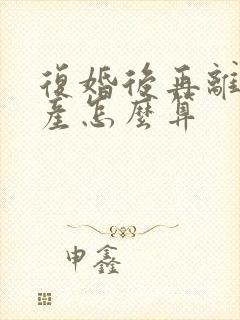 復婚後再離
產怎麼算
申鑫